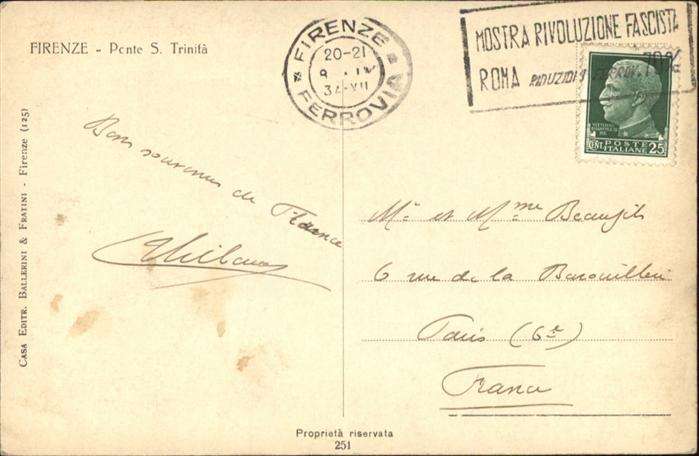 FIRENZE - Ponte S. Trinità
FIRENZE
20-21
34-XII
FERROVIA
MOSTRA RIVOLUZIONE FASCISTA
ROMA RIDUZIONI FERROV. 70%
POSTE
ITALIANE
CENT. 25
Bons souvenirs de Florence
Mr et Mme Beaufils
6 rue de la Barouillère
Paris (6e)
France
CASA EDITR. BALLERINI & FRATINI - Firenze (125)
Proprietà riservata
251